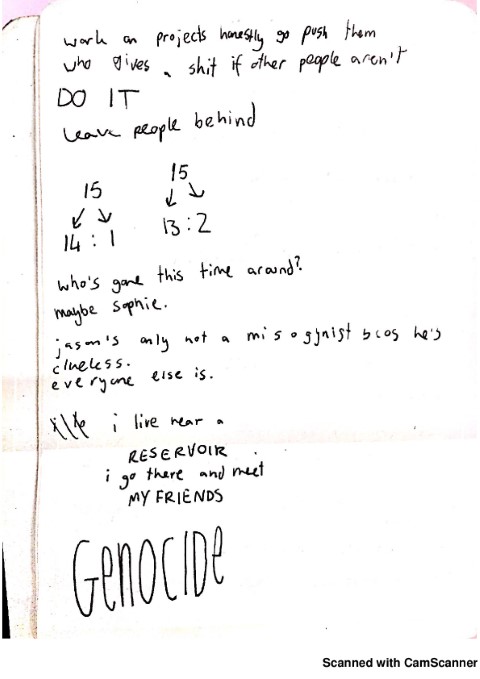 work on projects honestly go push them
who gives a shit if other people aren't
DO IT
Leave people behind
15
14 : 1
15
13 : 2
who's gone this time around?
maybe sophie.
jason's only not a misogynist bcos he's
clueless.
everyone else is.
i live near a
RESERVOIR
i go there and meet
MY FRIENDS
GENOCIDE
Scanned with CamScanner